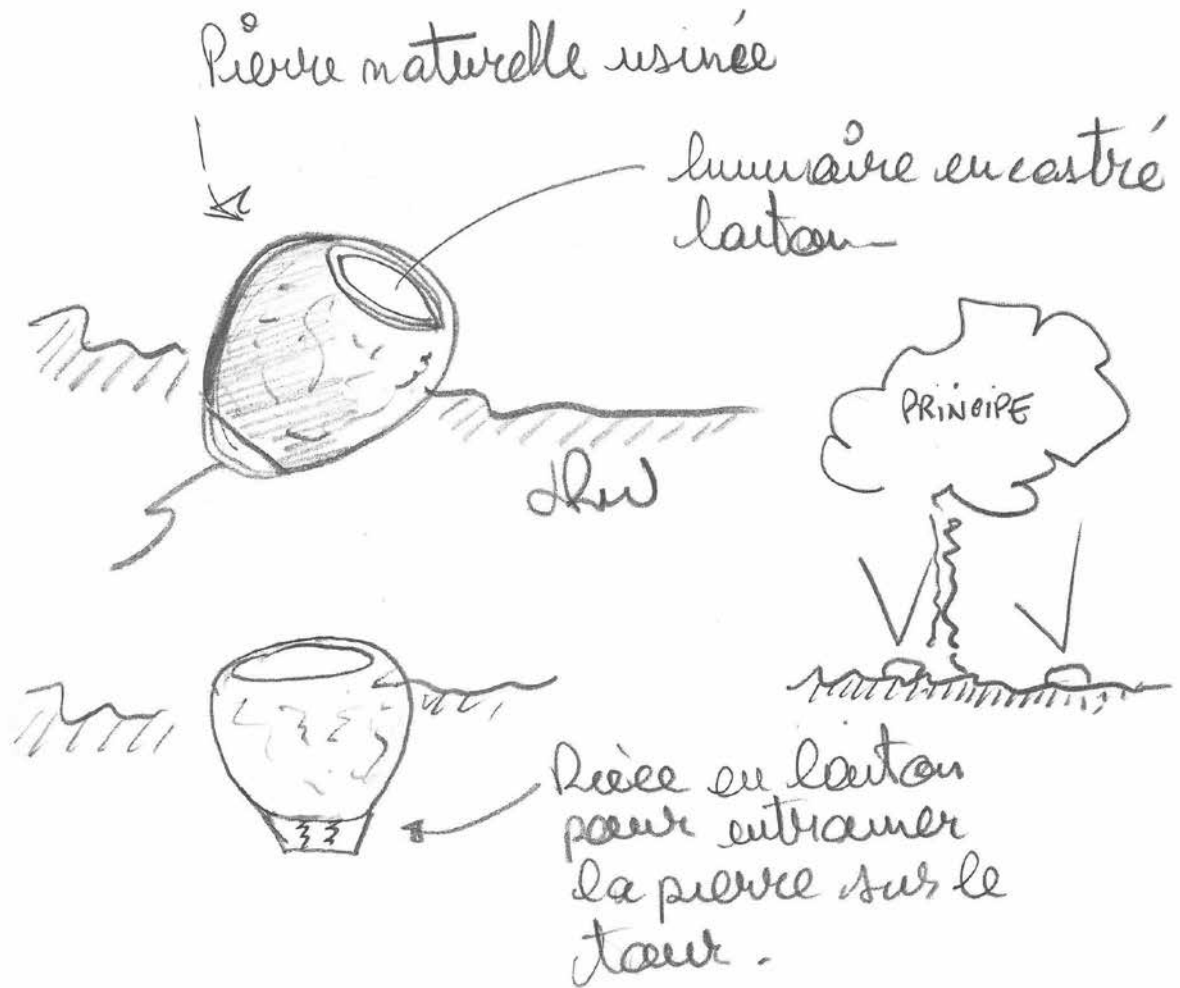 Pierre naturelle usinée
luminaire encastré
laiton
PRINCIPE
Pièce en laiton
pour entrainer
la pierre sur le
tour.